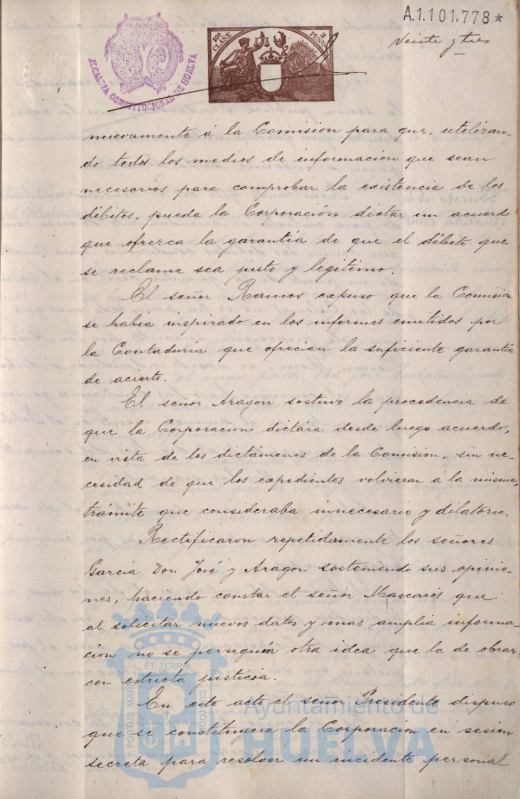 A.1.101.778*
Veinte y tres
ALCALDÍA CONSTITUCIONAL DE HUELVA
nuevamente á la Comisión para que, utilizan-
do todos los medios de información que sean
necesarios para comprobar la existencia de los
débitos, pueda la Corporación dictar un acuerdo
que ofrezca la garantía de que el débito que
se reclame sea justo y legítimo.
El señor Ramos expuso que la Comisión
se había inspirado en los informes emitidos por
la Contaduría que ofrecian la suficiente garantía
de acierto.
El señor Aragon sostuvo la procedencia de
que la Corporación dictára desde luego acuerdo,
en vista de los dictámenes de la Comisión, sin ne-
cesidad de que los expedientes volvieran á la misma,
trámite que consideraba innecesario y dilatorio.
Rectificaron repetidamente los señores
García Don José y Aragon sosteniendo sus opinio-
nes, haciendo constar el señor Mascarós que
al solicitar nuevos datos y mas amplia informa-
cion no se perseguía otra idea que la de obrar
con estricta justicia.
En este acto el señor Presidente dispuso
que se constituyera la Corporación en sesión
secreta para resolver un incidente personal
Ayuntamiento de
HUELVA